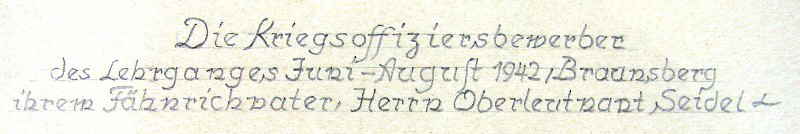 Die Kriegsoffiziersbewerber
des Lehrganges Juni-August 1942, Braunsberg
ihrem Fähnrichvater, Herrn Oberleutnant Seidel